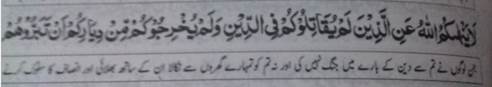 لَا يَنْهٰىكُمُ اللّٰهُ عَنِ الَّذِيْنَ لَمْ يُقَاتِلُوْكُمْ فِى الدِّيْنِ وَلَمْ يُخْرِجُوْكُمْ مِّنْ دِيَارِكُمْ اَنْ تَبَرُّوْهُمْ
جن لوگوں نے تم سے دین کے بارے میں جنگ نہیں کی اور نہ تم کو تمہارے گھروں سے نکالا ان کے ساتھ بھلائی اور انصاف کا سلوک کرنے